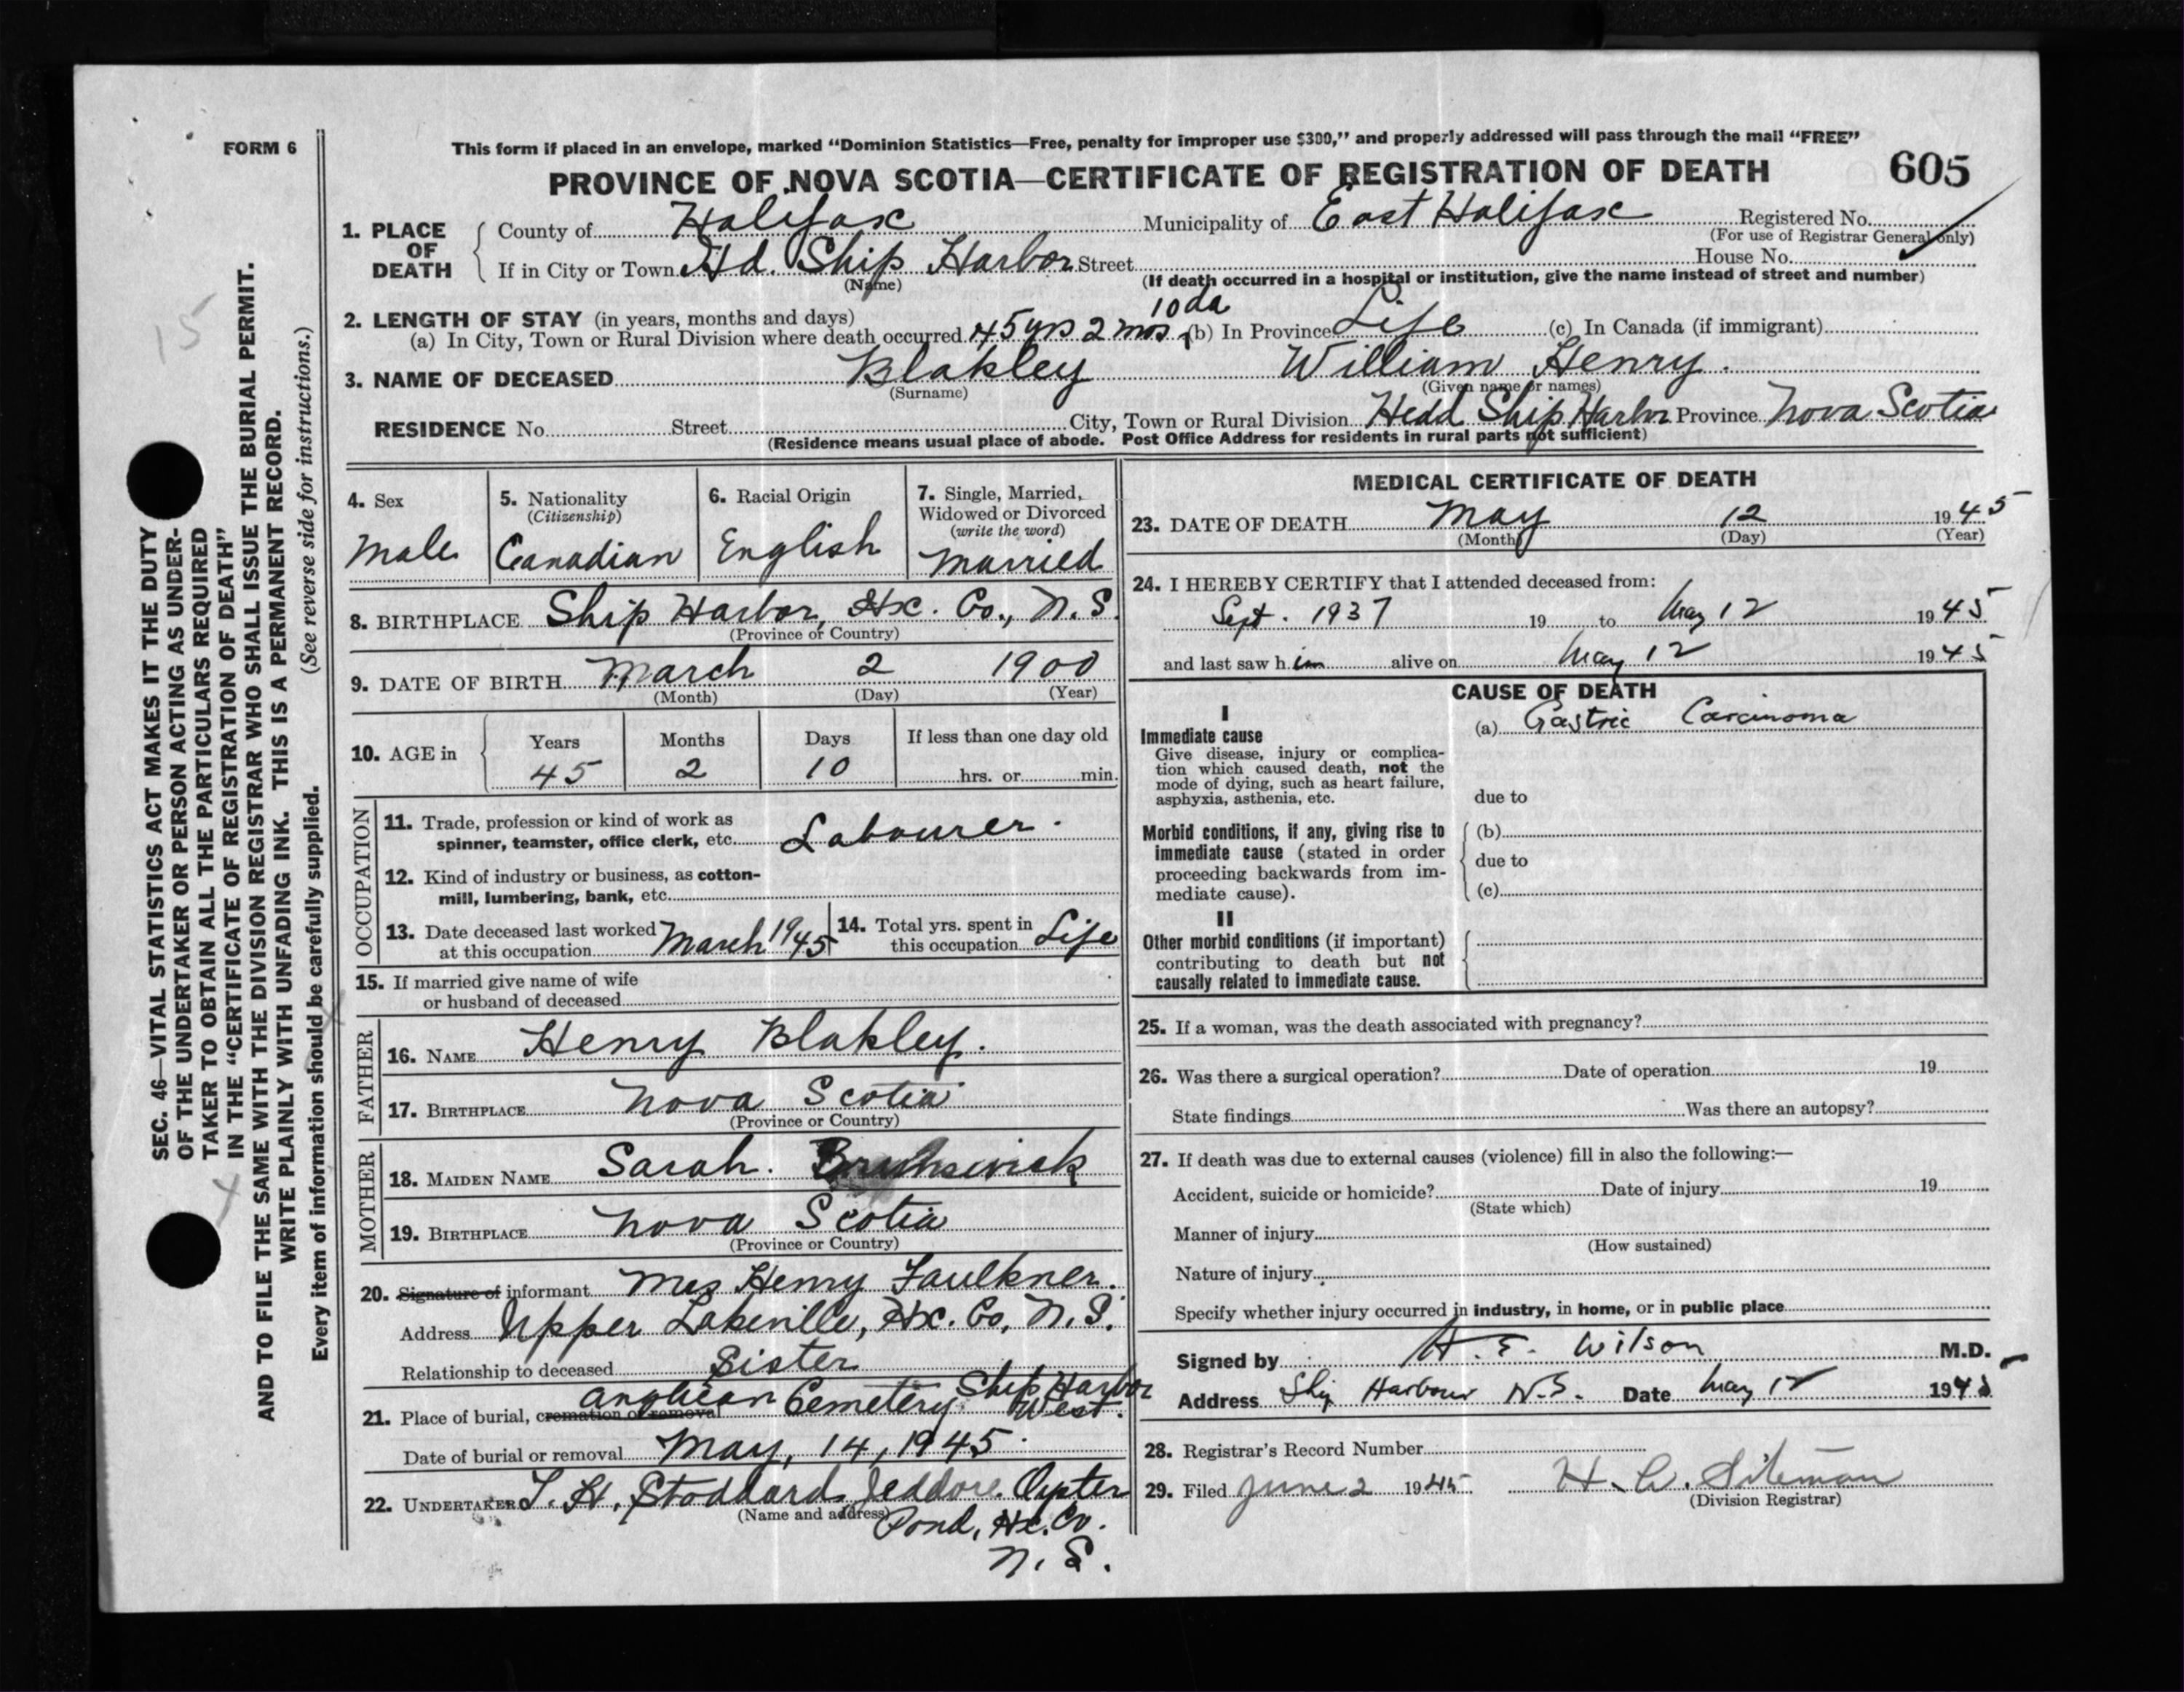 FORM 6
This form if placed in an envelope, marked "Dominion Statistics—Free, penalty for improper use $300," and properly addressed will pass through the mail "FREE"
PROVINCE OF NOVA SCOTIA—CERTIFICATE OF REGISTRATION OF DEATH 605
1. PLACE OF DEATH
County of Halifax Municipality of East Halifax Registered No.
(For use of Registrar General only)
If in City or Town Hd. Ship Harbor Street House No.
(Name) (If death occurred in a hospital or institution, give the name instead of street and number)
2. LENGTH OF STAY (in years, months and days)
10 da
(a) In City, Town or Rural Division where death occurred 45 yrs 2 mos (b) In Province Life (c) In Canada (if immigrant)
3. NAME OF DECEASED Blakley William Henry.
(Surname) (Given name or names)
RESIDENCE No. Street City, Town or Rural Division Hedd Ship Harbor Province Nova Scotia
(Residence means usual place of abode. Post Office Address for residents in rural parts not sufficient)
4. Sex
Male
5. Nationality
(Citizenship)
Canadian
6. Racial Origin
English
7. Single, Married,
Widowed or Divorced
(write the word)
Married
8. BIRTHPLACE Ship Harbor, Hx. Co., N.S.
(Province or Country)
9. DATE OF BIRTH March 2 1900
(Month) (Day) (Year)
10. AGE in
Years Months Days If less than one day old
45 2 10 hrs. or min.
OCCUPATION
11. Trade, profession or kind of work as
spinner, teamster, office clerk, etc. Labourer.
12. Kind of industry or business, as cotton-
mill, lumbering, bank, etc.
13. Date deceased last worked
at this occupation March 1945
14. Total yrs. spent in
this occupation Life
15. If married give name of wife
or husband of deceased
FATHER
16. NAME Henry Blakley.
17. BIRTHPLACE Nova Scotia
(Province or Country)
MOTHER
18. MAIDEN NAME Sarah.
19. BIRTHPLACE Nova Scotia
(Province or Country)
20. Signature of informant Mrs Henry Faulkner.
Address Upper Lakeville, Hx. Co, N.S.
Relationship to deceased Sister
21. Place of burial, cremation or removal Anglican Cemetery Ship Harbor West.
Date of burial or removal May, 14, 1945
22. UNDERTAKER T. H. Stoddard Jeddore Oyster
(Name and address) Pond, Hx. Co.
N. S.
MEDICAL CERTIFICATE OF DEATH
23. DATE OF DEATH May 12 1945
(Month) (Day) (Year)
24. I HEREBY CERTIFY that I attended deceased from:
Sept. 1937 19 to May 12 1945
and last saw him alive on May 12 1945
CAUSE OF DEATH
I
Immediate cause
Give disease, injury or complica-
tion which caused death, not the
mode of dying, such as heart failure,
asphyxia, asthenia, etc.
(a) Gastric Carcinoma
due to
Morbid conditions, if any, giving rise to
immediate cause (stated in order
proceeding backwards from im-
mediate cause).
(b)
due to
(c)
II
Other morbid conditions (if important)
contributing to death but not
causally related to immediate cause.
25. If a woman, was the death associated with pregnancy?
26. Was there a surgical operation? Date of operation 19
State findings Was there an autopsy?
27. If death was due to external causes (violence) fill in also the following:—
Accident, suicide or homicide? Date of injury 19
(State which)
Manner of injury
(How sustained)
Nature of injury
Specify whether injury occurred in industry, in home, or in public place
Signed by H. E. Wilson M.D.
Address Ship Harbour N.S. Date May 12 1945
28. Registrar's Record Number
29. Filed June 2 1945 Siteman
(Division Registrar)
15
SEC. 46—VITAL STATISTICS ACT MAKES IT THE DUTY
OF THE UNDERTAKER OR PERSON ACTING AS UNDER-
TAKER TO OBTAIN ALL THE PARTICULARS REQUIRED
IN THE "CERTIFICATE OF REGISTRATION OF DEATH"
AND TO FILE THE SAME WITH THE DIVISION REGISTRAR WHO SHALL ISSUE THE BURIAL PERMIT.
WRITE PLAINLY WITH UNFADING INK. THIS IS A PERMANENT RECORD.
Every item of information should be carefully supplied. (See reverse side for instructions.)